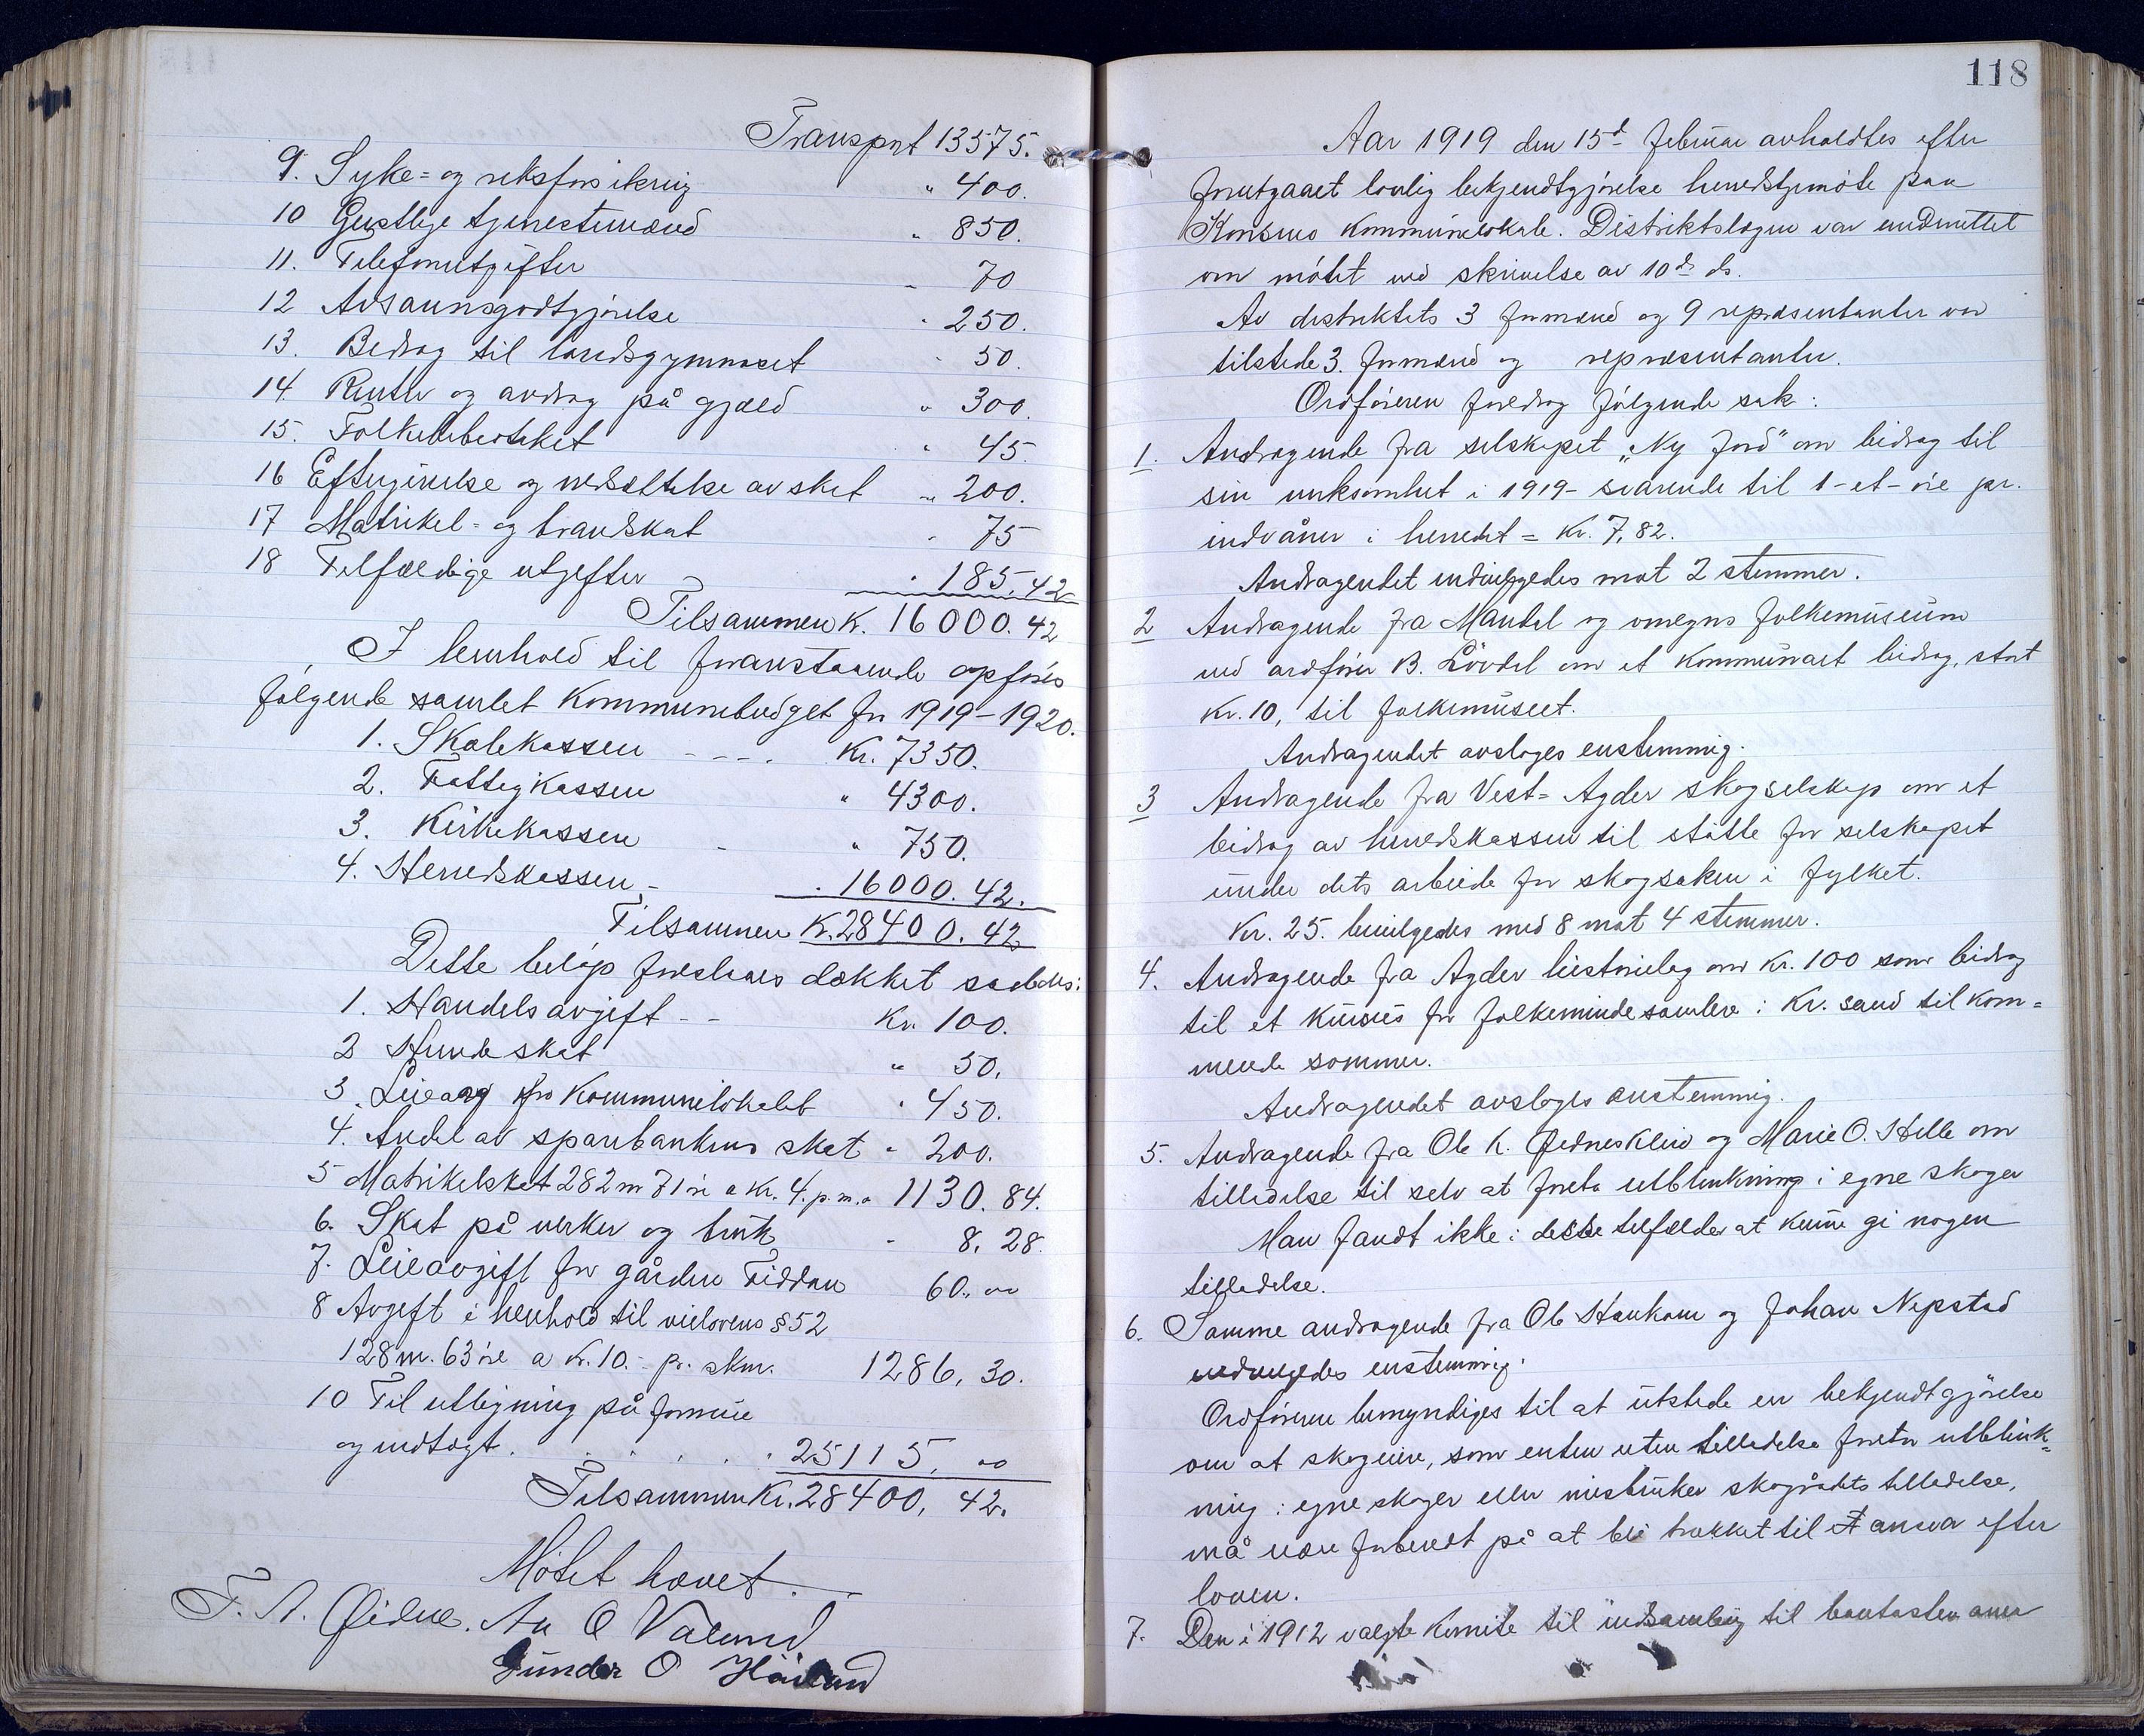 Transport 13575.
9. Syke- og riksforsikring " 400.
10 Geistlige tjenestemænd " 850.
11. Telefonutgifter " 70
12 Avsavnsgodtgjørelse " 250.
13. Bedrag til landsgymnaset " 50.
14. Renter og avdrag på gjæld " 300.
15. Folkebiblioteket " 45
16 Eftergivelse og nedsættelse av skat " 200.
17 Matrikel- og brandskat " 75
18 Tilfældige utgifter " 185.42
Tilsammen Kr. 16000.42
I henhold til foranstaaende opføres
følgende samlet Kommunebudget for 1919-1920.
1. Skolekassen - - - . Kr. 7350.
2. Fattigkassen " 4300.
3. Kirkekassen - " 750.
4. Herredskassen - . 16000.42.
Tilsammen Kr. 28400.42
Dette beløp foreslaaes dækket saaledes:
1. Handelsavgift - - Kr. 100.
2 Hundeskat " 50.
3. Leieavg fra Kommunelokalet " 450.
4. Andel av sparebankens skat " 200.
5 Matrikelskat 282 m 71 øre a Kr. 4. p. m. " 1130.84.
6. Skat på verker og bruk - 8.28.
7. Leieavgift for gården Fiddan 60.,"
8 Avgift i henhold til veilovens § 52
128 m. 63 øre a Kr. 10.- pr. skm. 1286,30.
10 Til utligning på formue
og indtægt . . . . . 25115,"
Tilsammen Kr. 28400,42.
Møtet hævet.
T. A. Øidne. An O Valand
Gunder O Håland
118
Aar 1919 den 15d februar avholdtes efter
forutgaaet lovlig bekjendtgjørelse herredstyremøte paa
Konsmo Kommunelokale. Distriktslægen var underrettet
om møtet ved skrivelse av 10ds ds.
Av distriktets 3 formænd og 9 repræsentanter var
tilstede 3. formænd og repræsentanter.
Ordføreren foredrog følgende sak:
1. Andragende fra selskapet "Ny Jord" om bidrag til
sin virksomhet i 1919 - svarende til 1 - et - øre pr.
indvåner i herredet = Kr. 7,82.
Andragendet indvilgedes mot 2 stemmer.
2 Andragende fra Mandal og omegns folkemuseum
ved ordfører B. Lövdal om et kommunalt bidrag, stort
Kr. 10, til folkemuseet.
Andragendet avsloges enstemmig.
3 Andragende fra Vest-Agder skogselskap om et
bidrag av herredskassen til støtte for selskapet
under dets arbeide for skogsaken i fylket.
Kr. 25. bevilgedes med 8 mot 4 stemmer.
4. Andragende fra Agder historielag om Kr. 100 som bidrag
til et kursus for folkemindesamlere i Kr.sand til kom-
mende sommer.
Andragendet avsloges enstemmig.
5. Andragende fra Ole K. Øidneskleiv og Marie O. Helle om
tilladelse til selv at foreta utblinkning i egne skoger
Man fandt ikke i disse tilfælder at kunne gi nogen
tilladelse.
6. Samme andragende fra Ole Haukom og Johan Nepstad
indvilgedes enstemmig.
Ordføreren bemyndiges til at utstede en bekjendtgjørelse
om at skogeiere, som enten uten tilladelse foretar utblink-
ning i egne skoger eller misbruker skogrådets tilladelse,
må være forberedt på at bli trækket til et ansvar efter
loven.
7. Den i 1912 valgte komite til indsamling til bautasten over